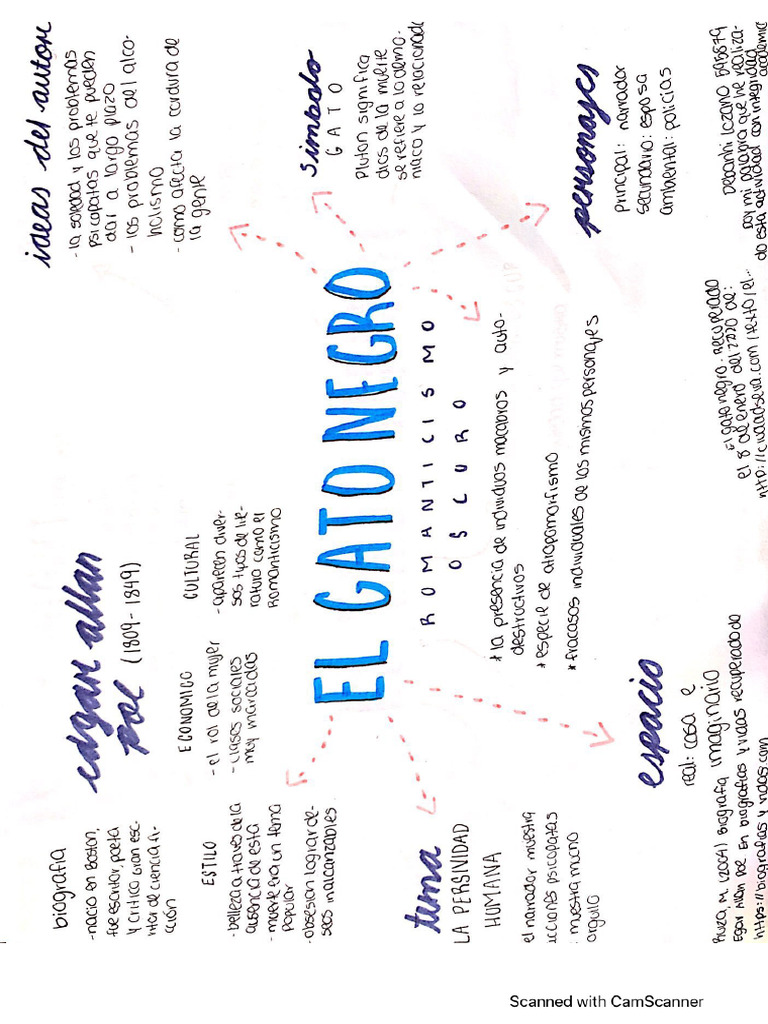 edgar allan
poe (1809-1849)
biografia
-nacio en Boston,
fue escritor, poeta
y critico gran esc-
ritor de ciencia fi-
cción
ESTILO
-belleza a traves de la
ausencia de esta
-muerte era un tema
popular
-obsesion lograr de-
seos inalcanzables
ECONOMICO
-el rol de la mujer
-clases sociales
muy marcadas
CULTURAL
-aparecen diver-
sos tipos de lite-
ratura como el
Romanticismo
ideas del autor
-la soledad y los problemas
psicopatas que te pueden
dar a largo plazo
-los problemas del alco-
holismo
-como afecta la cordura de
la gente
EL GATO NEGRO
ROMANTICISMO
OSCURO
* la presencia de individuos macabros y auto-
destructivos
* especie de
* fracasos individuales de los mismos personajes
simbolo
GATO
Pluton significa
dios de la muerte
se refiere a lo demo-
niaco y lo relacionado
tema
LA PERSIVIDAD
HUMANA
el narrador muestra
acciones psicopatas
muestra mucho
orgullo
espacio
real: casa e
imaginario
personajes
principal: narrador
secundario: esposa
ambiental: policias
M. (2004) Biografia
Egar Allan Poe. En biografias y vidas recuperado de
https://biografias y vidas.com
El gato negro. Recuperado
el 8 de enero del 2020 de:
http://ciudadseva.com/texto/el...
Debanhi Lozano 595879
Doy mi palabra que he realiza-
do esta actividad con integridad
academica
Scanned with CamScanner